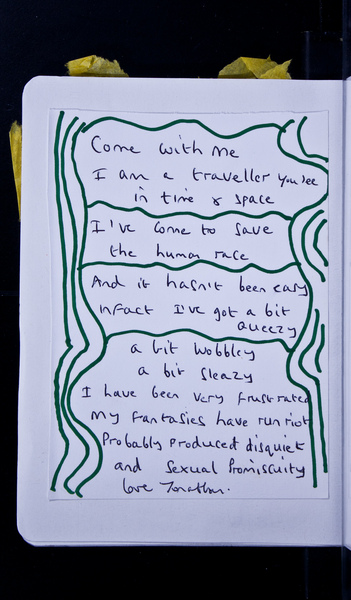 Come with me
I am a traveller you see
in time & space
I've come to save
the human race
And it hasn't been easy
infact I've got a bit
queezy
a bit wobbley
a bit sleazy
I have been very frustrated
My fantasies have run riot
Probably produced disquiet
and sexual promiscuity
love Jonathan.